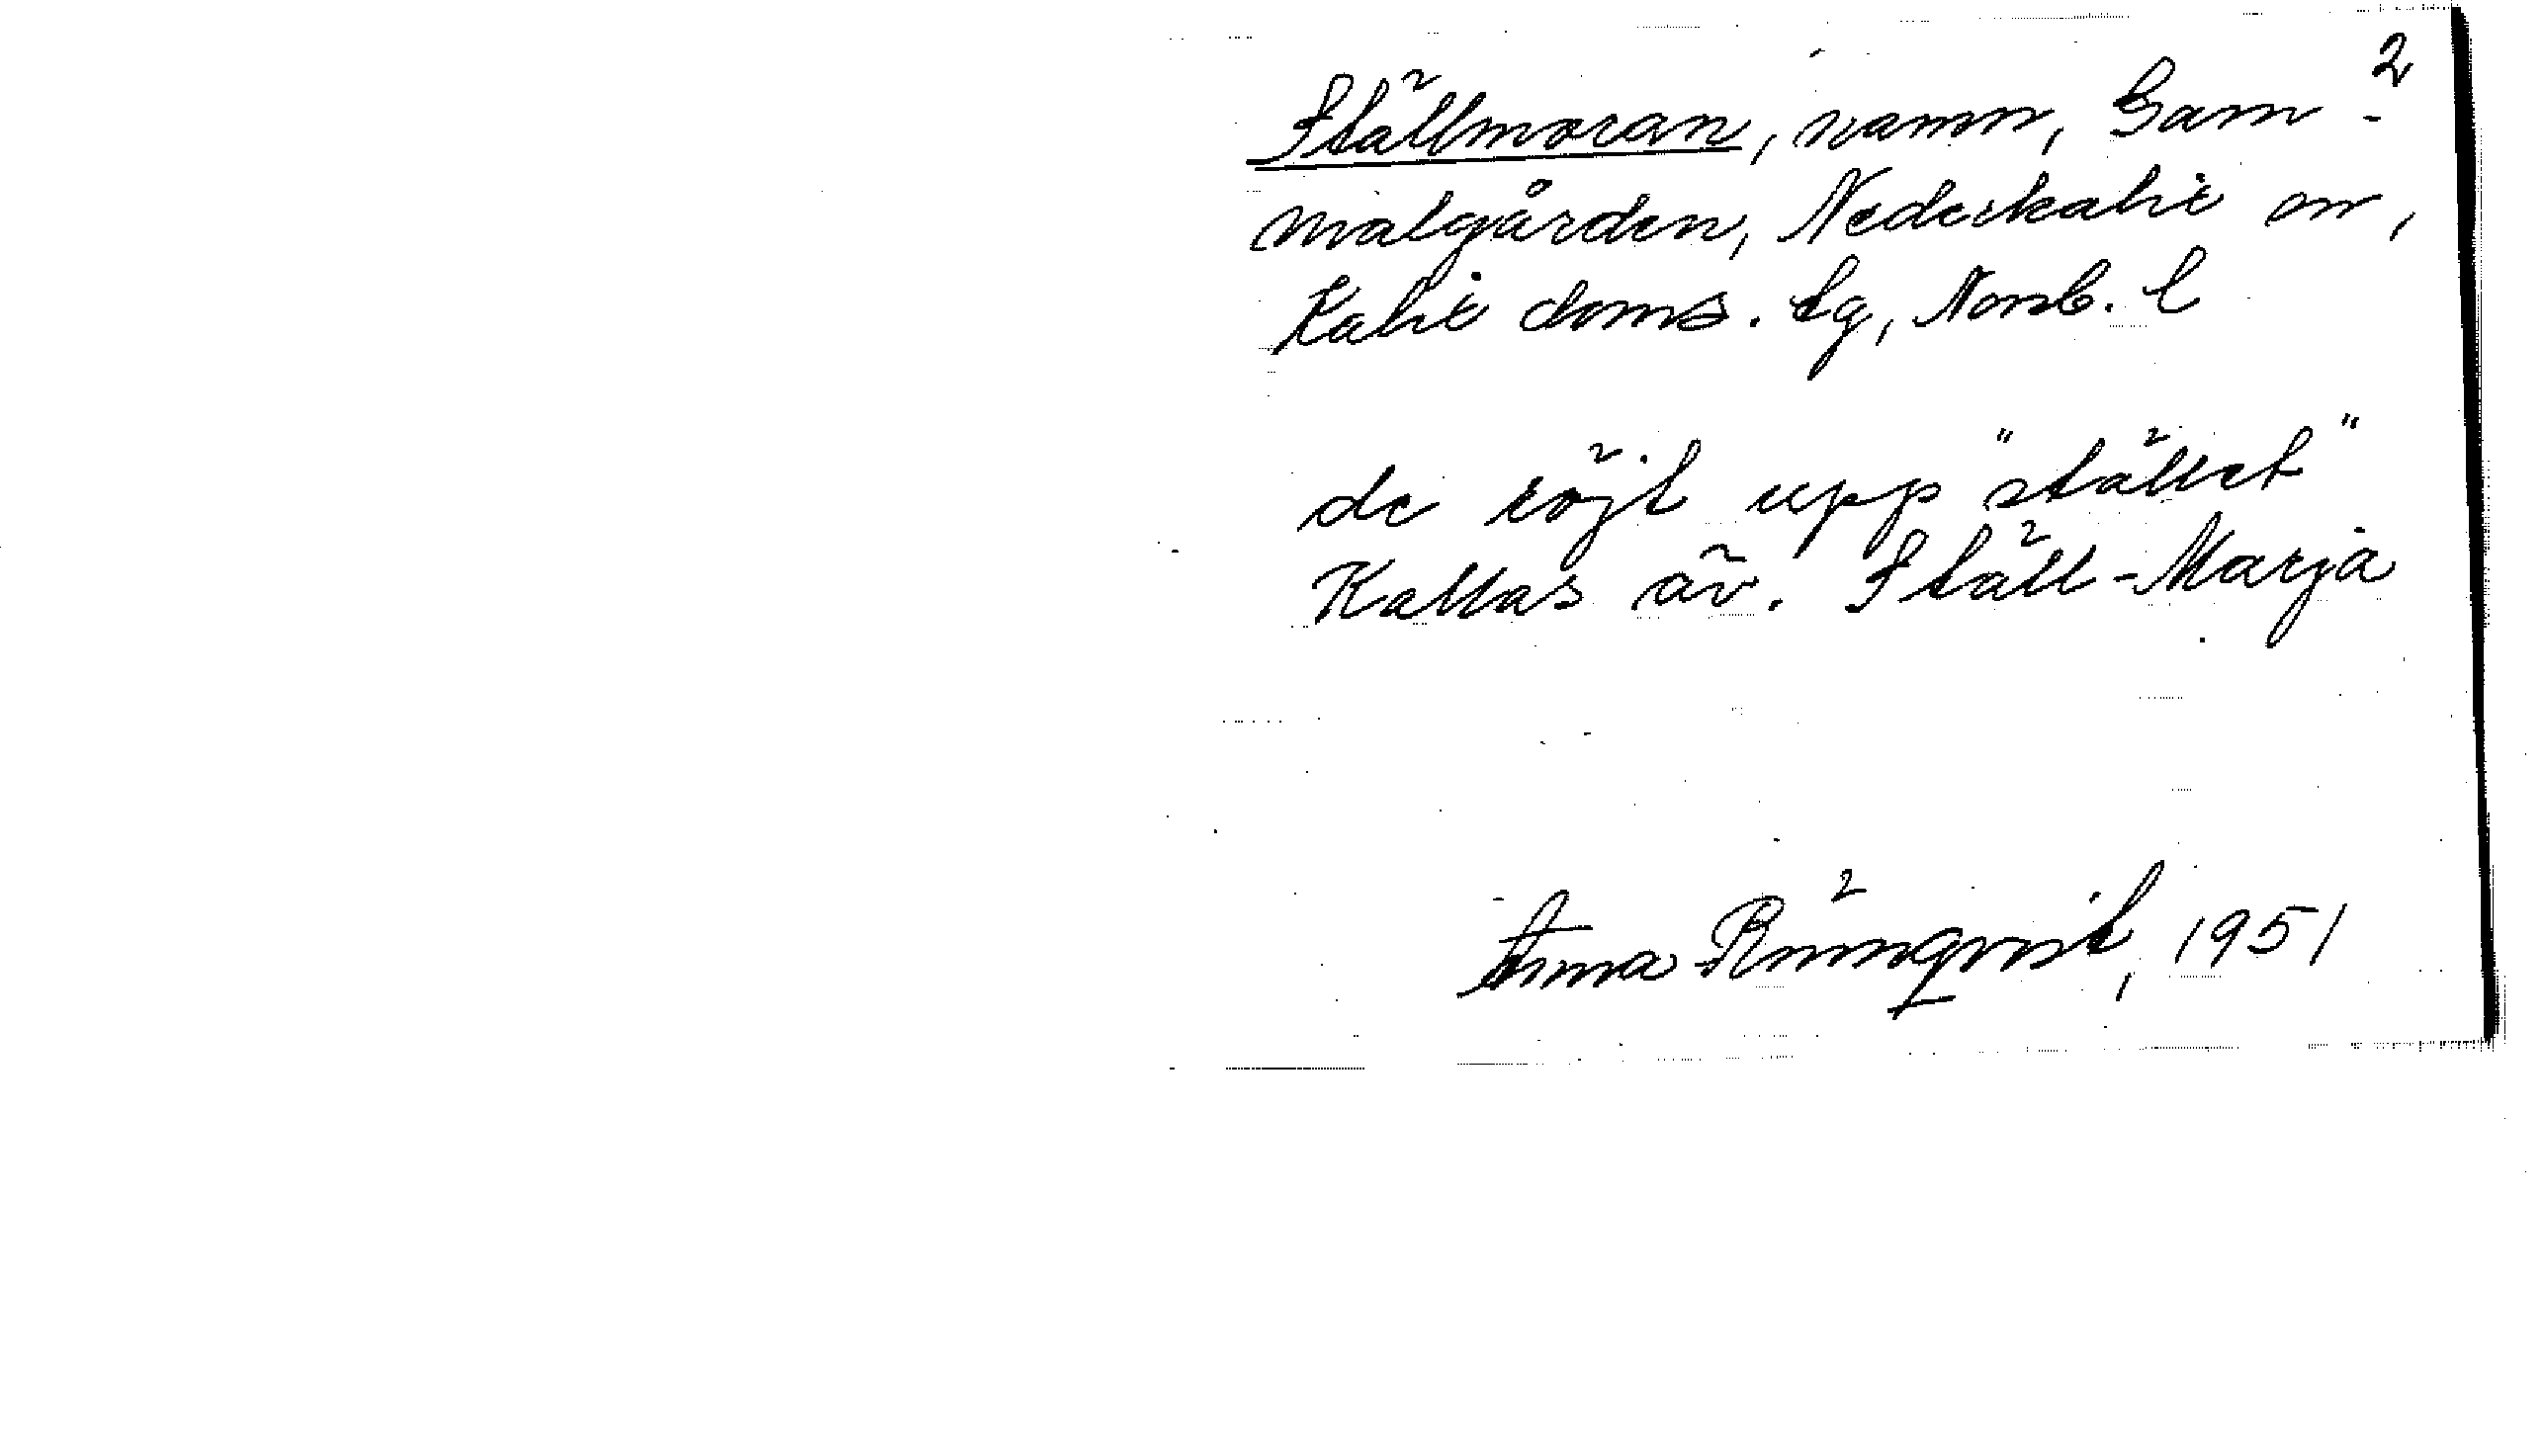 2
Ställmoran, namn, Gam-
malgården, Nederkalix sn,
Kalix doms. tg, Norrb. l
de röjt upp "stället"
Kallas äv. Ställ-Marja
Anna Rönnqvist, 1951